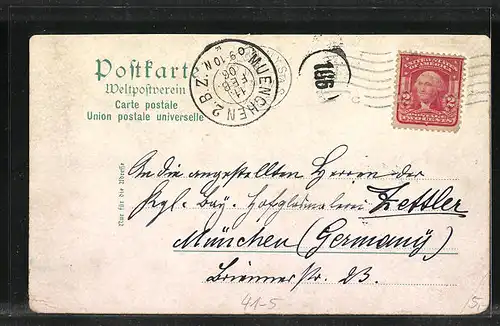 Postkarte
Weltpostverein
Carte postale
Union postale universelle
MUENCHEN 2. B.Z.
11 FEB 06
9-10 N
186
UNITED STATES OF AMERICA
2 2
TWO CENTS
Nur für die Adresse
An die angestellten Herren der
Kgl. Bay. Hofglasmalerei Zettler
München (Germany)
Briennerstr. 23.
41-5
5,-